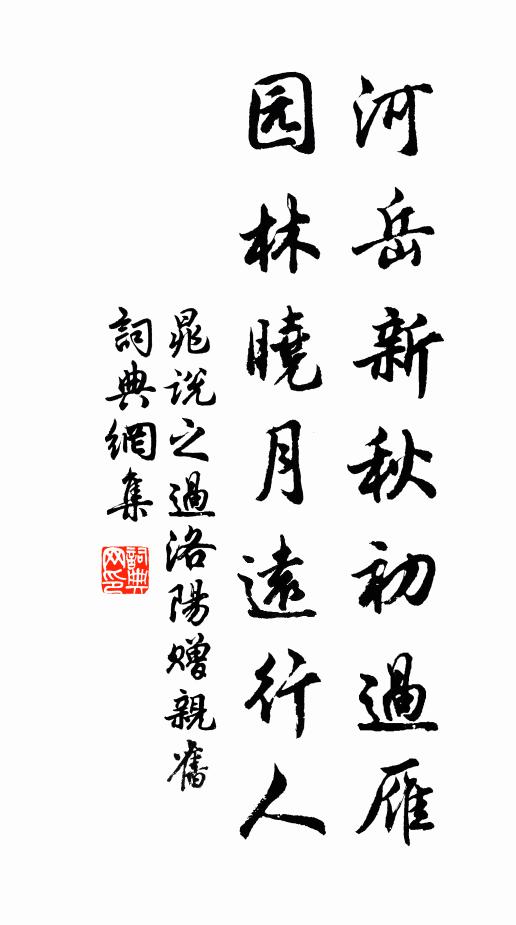 河岳新秋初過雁
园林曉月遠行人
晁说之過洛陽赠親舊
詞典網集
詞典网印